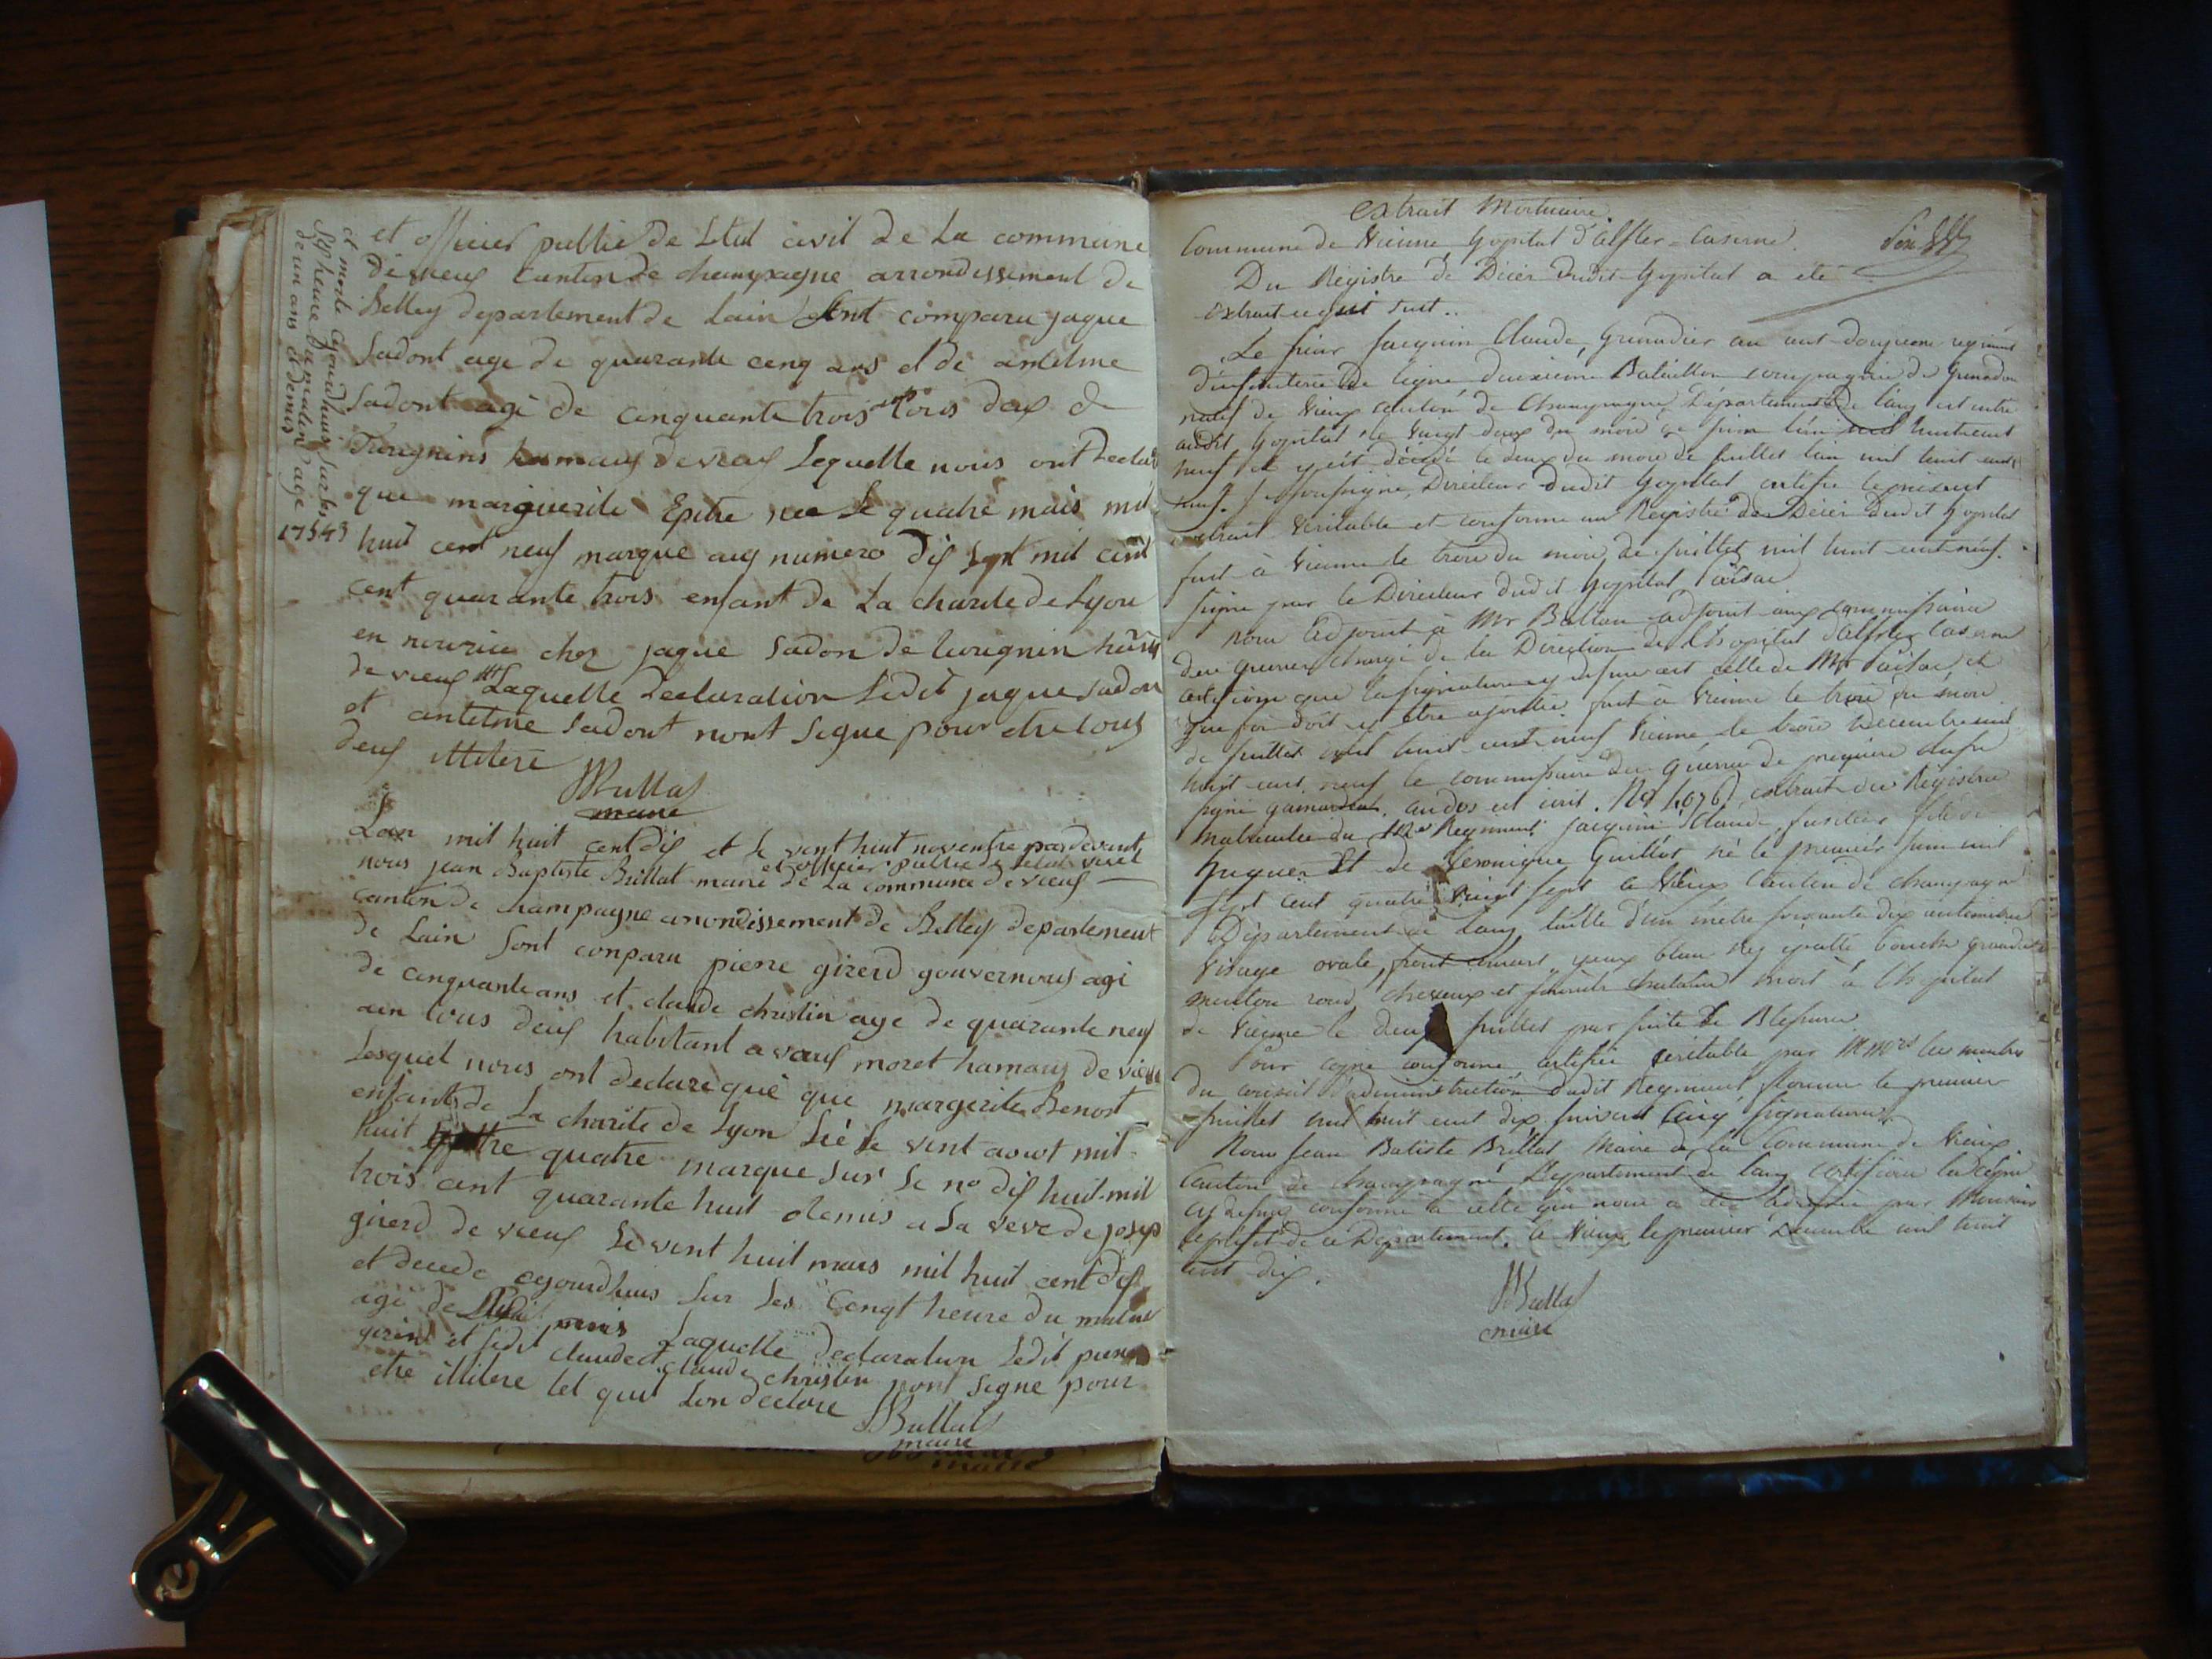 et officier public de Letat civil de La commune
de vieux Canton de champagne arrondissement de
Belley departement de Lain sont comparu jaque
Sadont age de quarante cenq ans et de antelme
Sadont age de cenquante trois ans tous deux de
hamaux de vieux Lequelle nous ont Declare
que marguerite Epitre nee Le quatre mais mil
17543 huit cent neuf marque aux numero dix sept mil cent
cent quarante trois enfant de La charite de Lyon
en nourice chez jaque Sadon de
de vieux Laquelle Declaration Ledit jaque Sadon
et antelme Sadont nont Signe pour etre tous
deux illitere
Brillat
maire
et morte ajourdhuis sur les
sept heure du matin age
de un ans et demis
Lan mil huit cent dix et le vent huit novembre par devant
et officier public de letat civil
nous jean Baptiste Brillat maire de La commune de vieux
canton de champagne arrondissement de Belley departement
de Lain sont conparu pierre girerd gouvernoux age
de cenquante ans et claude christin age de quarante neuf
ans tous deux habitant a vaux moret hamaux de vieux
Lesquel nous ont declare que que margerite Benost
enfant de La charite de Lyon né Le vent aout mil
huit quatre marque sur Le no dix huit mil
trois cent quarante huit demis a La veve de josep
girerd de vieux Le vent huit mars mil huit cent dix
et decede ajourdhuis sur Les cenqt heure du matin
age de mois Laquelle declaration Ledit pierre
girerd et ledit claude christin nont Signe pour
etre illitere tel quil Lon declare
Brillat
maire
extrait Mortuaire.
Commune de Vienne hopital d'alster-Caserne.
Du Régistre de Décès dudit hopital a été
extrait ce qui suit..
Le sieur Jacquin Claude, Grenadier au cent-douzieme régiment
d'infanterie de ligne deuxieme Bataillon compagnie de Grenadier
natif de Vieux canton de Champagne, Département de l'ain est entré
audit hopital le vingt deux du mois de juin l'an mil huit cent
neuf et y est décédé le deux du mois de juillet l'an mil huit cent
neuf. Je soussigné, Directeur dudit hopital certifie le présent
extrait véritable et conforme au Régistre de Décès dudit hopital
fait à Vienne le trois du mois de juillet mil huit cent neuf.
signé par le Directeur dudit hopital
nous adjoint à Mr adjoint aux commissaires
des guerres chargé de la Direction de l'hopital d'alster Caserne
certifions que la signature cy dessus est celle de Mr et
que foi doit y être ajoutée fait à Vienne le trois du mois
de juillet mil huit-cent neuf Vienne le trois Decembre mil
huit cent neuf le commissaire des Guerres de premiere classe
signé au dos est écrit. No 1076 extrait du Régistre
matricule du 112e Régiment Jacquin Claude, fusilier fils de
et de Véronique Guillot né le premier juin mil
sept cent quatre vingt sept à Vieux Canton de champagne
Département de l'ain taille d'un mètre soixante dix centimetres
visage ovale, front yeux bleus nez épatté bouche grande
menton rond, cheveux et sourcils chatains mort à l'hopital
de Vienne le deux juillet par suite de Blessures
Pour copie conforme, certifiée véritable par MMrs les membres
du conseil d'administration dudit Régiment le premier
juillet mil huit cent dix suivent cinq signatures.
Nous Jean Batiste Brillat Maire de la Commune de Vieux
Canton de champagne Département de l'ain Certifions la copie
cy dessus conforme à celle qui nous a été adressée par Monsieur
le préfet de ce Département. à Vieux le premier Decembre mil huit
cent dix.
Brillat
maire